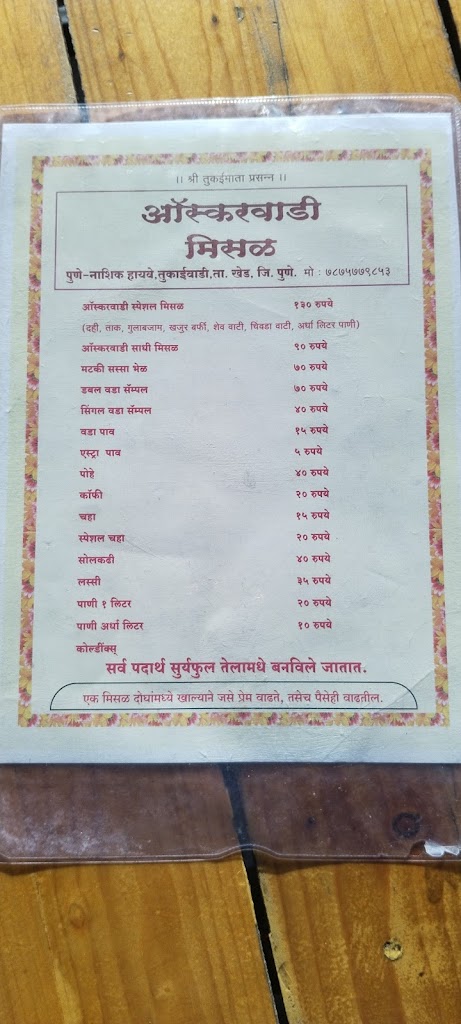 ।। श्री तुकाईमाता प्रसन्न ।।
ऑस्करवाडी
मिसळ
पुणे-नाशिक हायवे,तुकाईवाडी,ता. खेड, जि. पुणे. मो : ७८७५७७९८५३
ऑस्करवाडी स्पेशल मिसळ १३० रुपये
(दही, ताक, गुलाबजाम, खजुर बर्फी, शेव वाटी, चिवडा वाटी, अर्धा लिटर पाणी)
ऑस्करवाडी साधी मिसळ ९० रुपये
मटकी सस्सा भेळ ७० रुपये
डबल वडा सॅम्पल ७० रुपये
सिंगल वडा सॅम्पल ४० रुपये
वडा पाव १५ रुपये
एस्ट्रा पाव ५ रुपये
पोहे ४० रुपये
कॉफी २० रुपये
चहा १५ रुपये
स्पेशल चहा २० रुपये
सोलकढी ४० रुपये
लस्सी ३५ रुपये
पाणी १ लिटर २० रुपये
पाणी अर्धा लिटर १० रुपये
कोल्डींक्स्
सर्व पदार्थ सुर्यफुल तेलामधे बनविले जातात.
एक मिसळ दोघांमध्ये खाल्याने जसे प्रेम वाढते, तसेच पैसेही वाढतील.